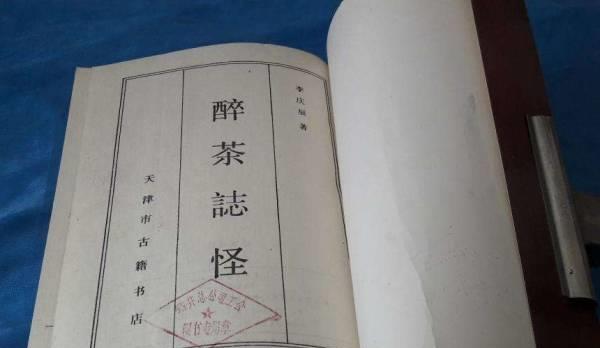 李庆辰著
醉茶誌怪
天津市古籍书店